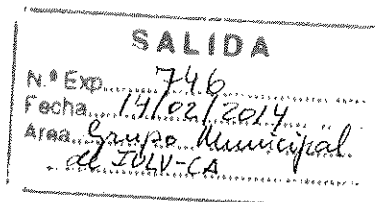 SALIDA
N.º Exp. 746
Fecha 14/02/2014
Area Grupo Municipal
de IULV-CA